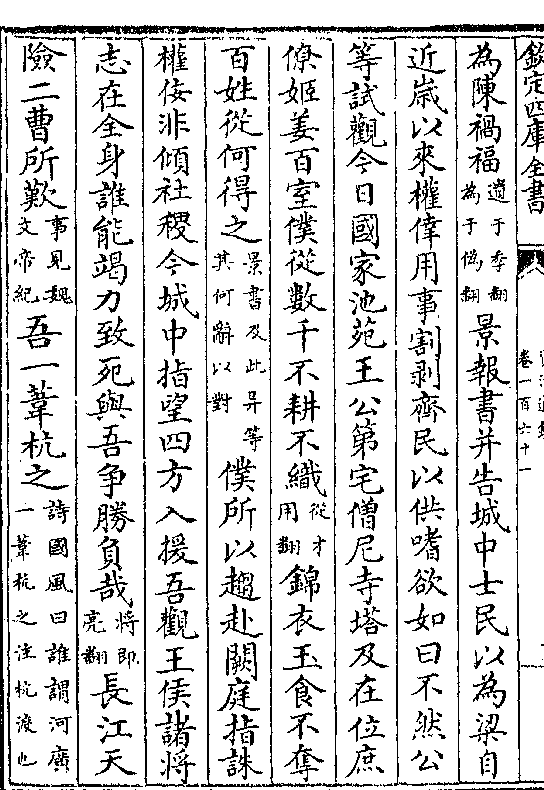 欽定四庫全書
卷一百六十一
為陳禍福遺于季翻為于偽翻景報書并告城中士民以為梁自
近歲以來權倖用事割剥齊民以供嗜欲如曰不然公
等試觀今日國家池苑王公第宅僧尼寺塔及在位庶
僚姬姜百室僕從數千不耕不織從才用翻錦衣玉食不奪
百姓從何得之景書及此昇等其何辭以對僕所以趨赴闕庭指誅
權佞非傾社稷今城中指望四方入援吾觀王侯諸將
志在全身誰能竭力致死與吾争勝負哉將即亮翻長江天
險二曹所歎事見魏文帝紀吾一葦杭之詩國風曰誰謂河廣一葦杭之注杭渡也